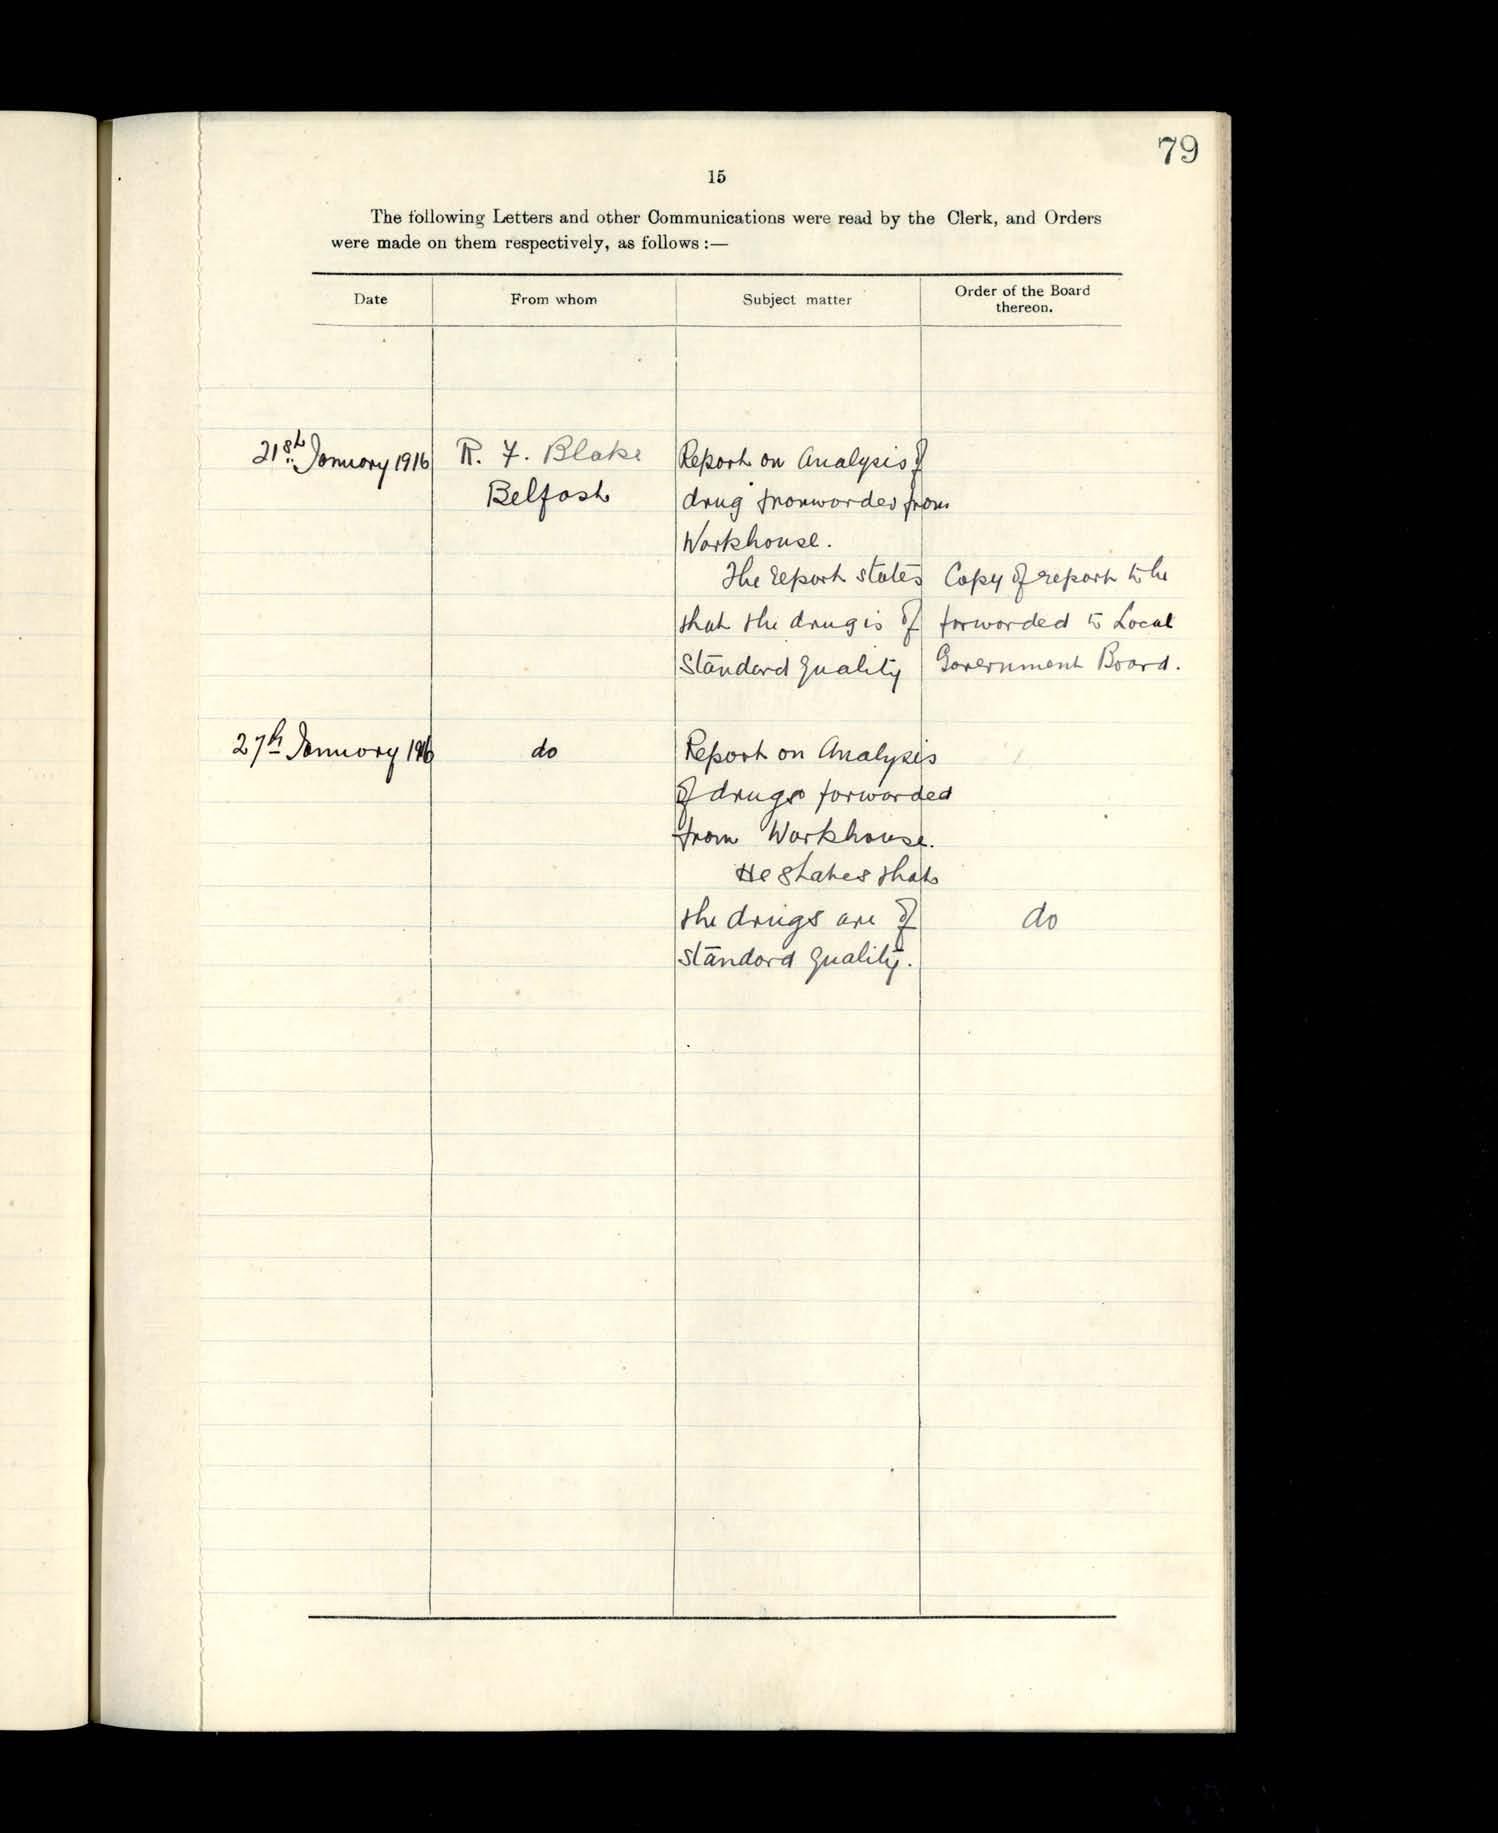 79
15
The following Letters and other Communications were read by the Clerk, and Orders
were made on them respectively, as follows :—
Date
From whom
Subject matter
Order of the Board
thereon.
21st January 1916
R. F. Blake
Belfast
Report on Analysis of
drug fronworded from
Workhouse.
The report states
that the drug is of
Standard quality
Copy of report to be
forworded to Local
Government Board.
27th January 1916
do
Report on Analysis
of drugs forwarded
from Workhouse.
He states that
the drugs are of
standard quality.
do